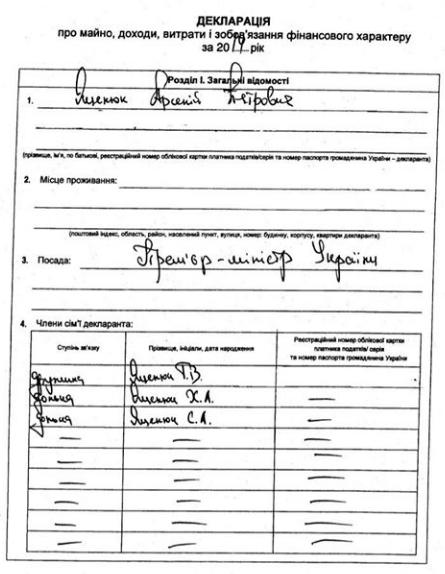 ДЕКЛАРАЦІЯ
про майно, доходи, витрати і зобов'язання фінансового характеру
за 2014 рік
Розділ I. Загальні відомості
1. Яценюк Арсеній Петрович
(прізвище, ім'я, по батькові, реєстраційний номер облікової картки платника податків/серія та номер паспорта громадянина України – декларанта)
2. Місце проживання:
(поштовий індекс, область, район, населений пункт, вулиця, номер будинку, корпусу, квартири декларанта)
3. Посада: Прем'єр-міністр України
4. Члени сім'ї декларанта:
Ступінь зв'язку Прізвище, ініціали, дата народження Реєстраційний номер облікової картки платника податків/ серія та номер паспорта громадянина України
дружина Яценюк Т.В.
донька Яценюк Х.А. —
донька Яценюк С.А. —
— — —
— — —
— — —
— — —
— — —
— — —